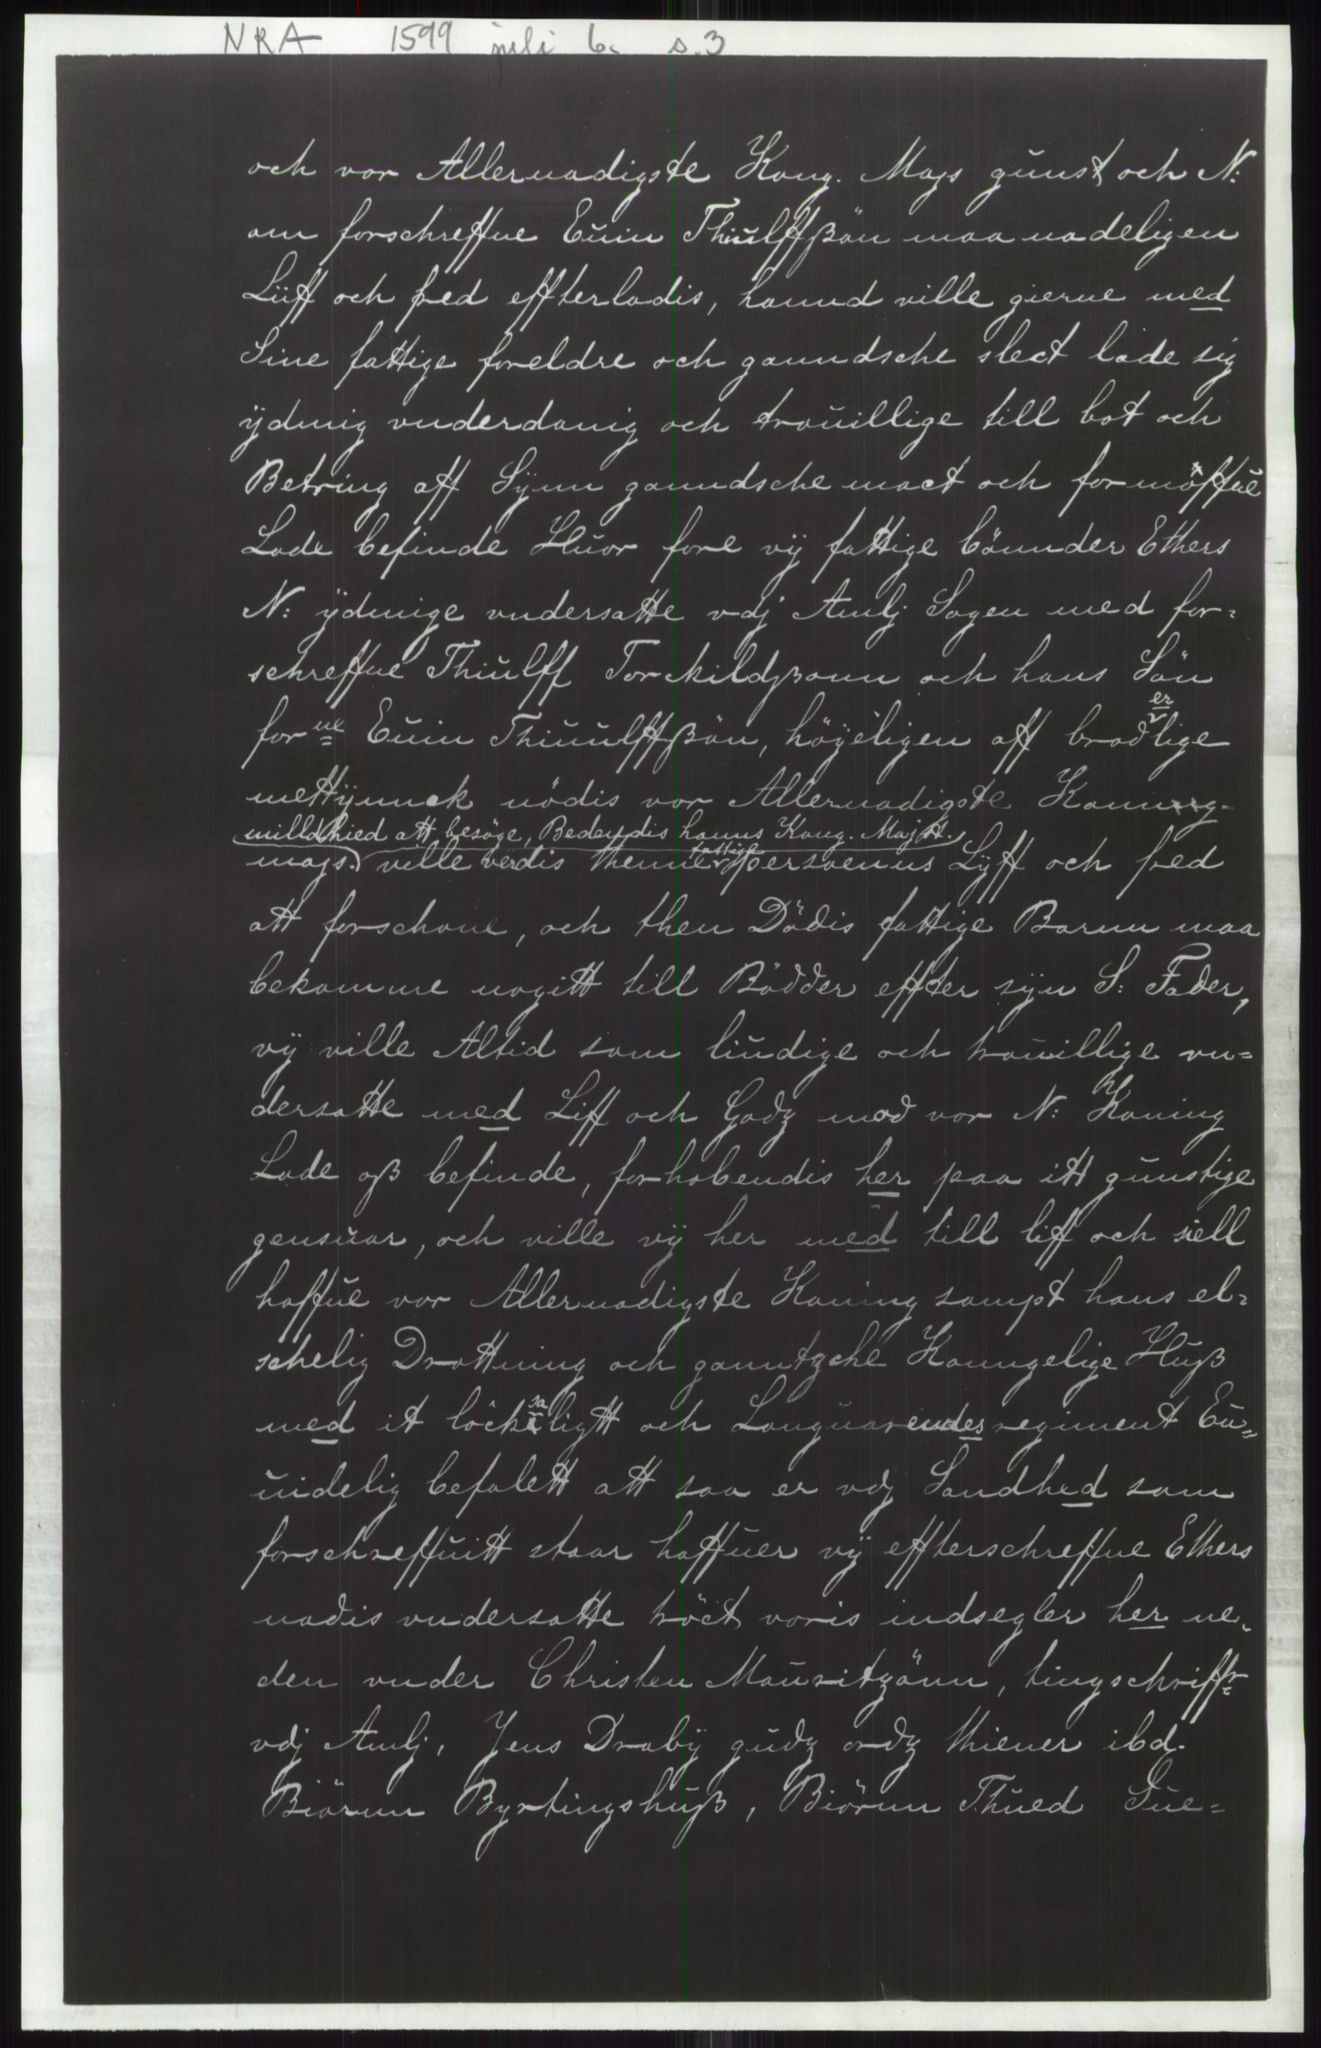 NRA 1599 juli 6. s. 3
och vor Allernadigste Kong. Mays gunst och N:
om forschreffne Euin Thiulffßön maa nadeligen
Liiff och fred effterladis, hannd ville gierne med
Sine fattige foreldre och ganndsche slect lade sig
ÿdmig vnderdanig och trouillige till bot och
Betring aff Sÿnn ganndsche mact och formöffue
Lade befinde Huor fore vÿ fattige bönnder Ethers
N: ÿdmige vndersatte vdj Amlj Sogen med for=
schreffne Thiulff Torckildßonn och hans Sön
forne Euin Thiuulffßön, höÿeligen aff broderlige
mettÿnnck nödis vor Allernadigste Konning=
milldhied att besöge, Bedendis hanns Kong. Majtt.
mays. ville verdis thenne fattige persoenns Lÿff och fred
att forschone, och then Dödis fattige Barnn maa
bekomme nogitt till Bödder effter sÿn S: Fader,
vÿ ville Altid som liudige och trouillige vn=
dersatte med Liff och Godz mod vor N: Koning
Lade oß befinde, forhobendis her paa itt gunstige
gensuar, och ville vÿ her med till liff och siell
haffue vor Allernadigste Koning sampt hans el=
schelig Drottning och ganntzche Konngelige Huß
med it löcksaligtt och Languarendes regiment Eu=
uidelig befalett att saa er vdj Sandhed som
forschreffuitt staar haffuer vÿ effterschreffne Ethers
nadis vndersatte tröct voris indsegler her ne=
den vnder Christen Mouritzönn, tingschriffr
vdj Amlj, Jens Drabÿ gudz ordz thiener ibd.
Biörnn Byrtingshuß, Biörnn Thued Sue=